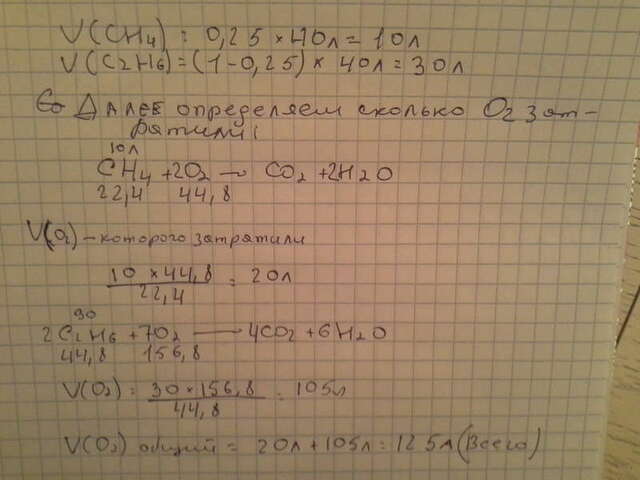 V(CH4) = 0,25 × 40л = 10л
V(C2H6) = (1-0,25) × 40л = 30л
Далее определяем сколько O2 зат-
ратили:
10л
CH4 + 2O2 → CO2 + 2H2O
22,4 44,8
V(O2) - которого затратили
10 × 44,8 = 20л
22,4
30
2C2H6 + 7O2 → 4CO2 + 6H2O
44,8 156,8
V(O2) = 30 × 156,8 = 105л
44,8
V(O2) общий = 20л + 105л = 125л (Всего)